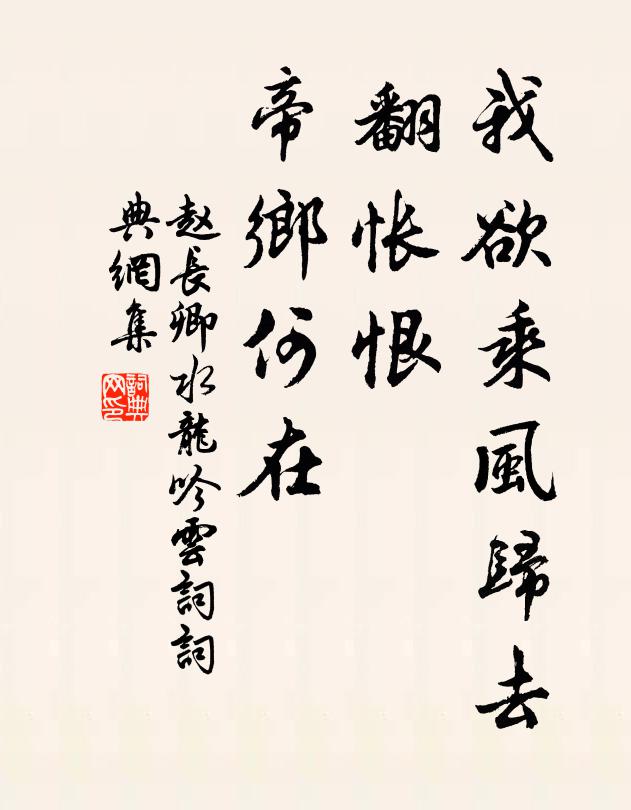 我欲乘風歸去
翻悵恨
帝鄉何在
赵長卿水龍吟雲詞詞
典網集
詞典
网印